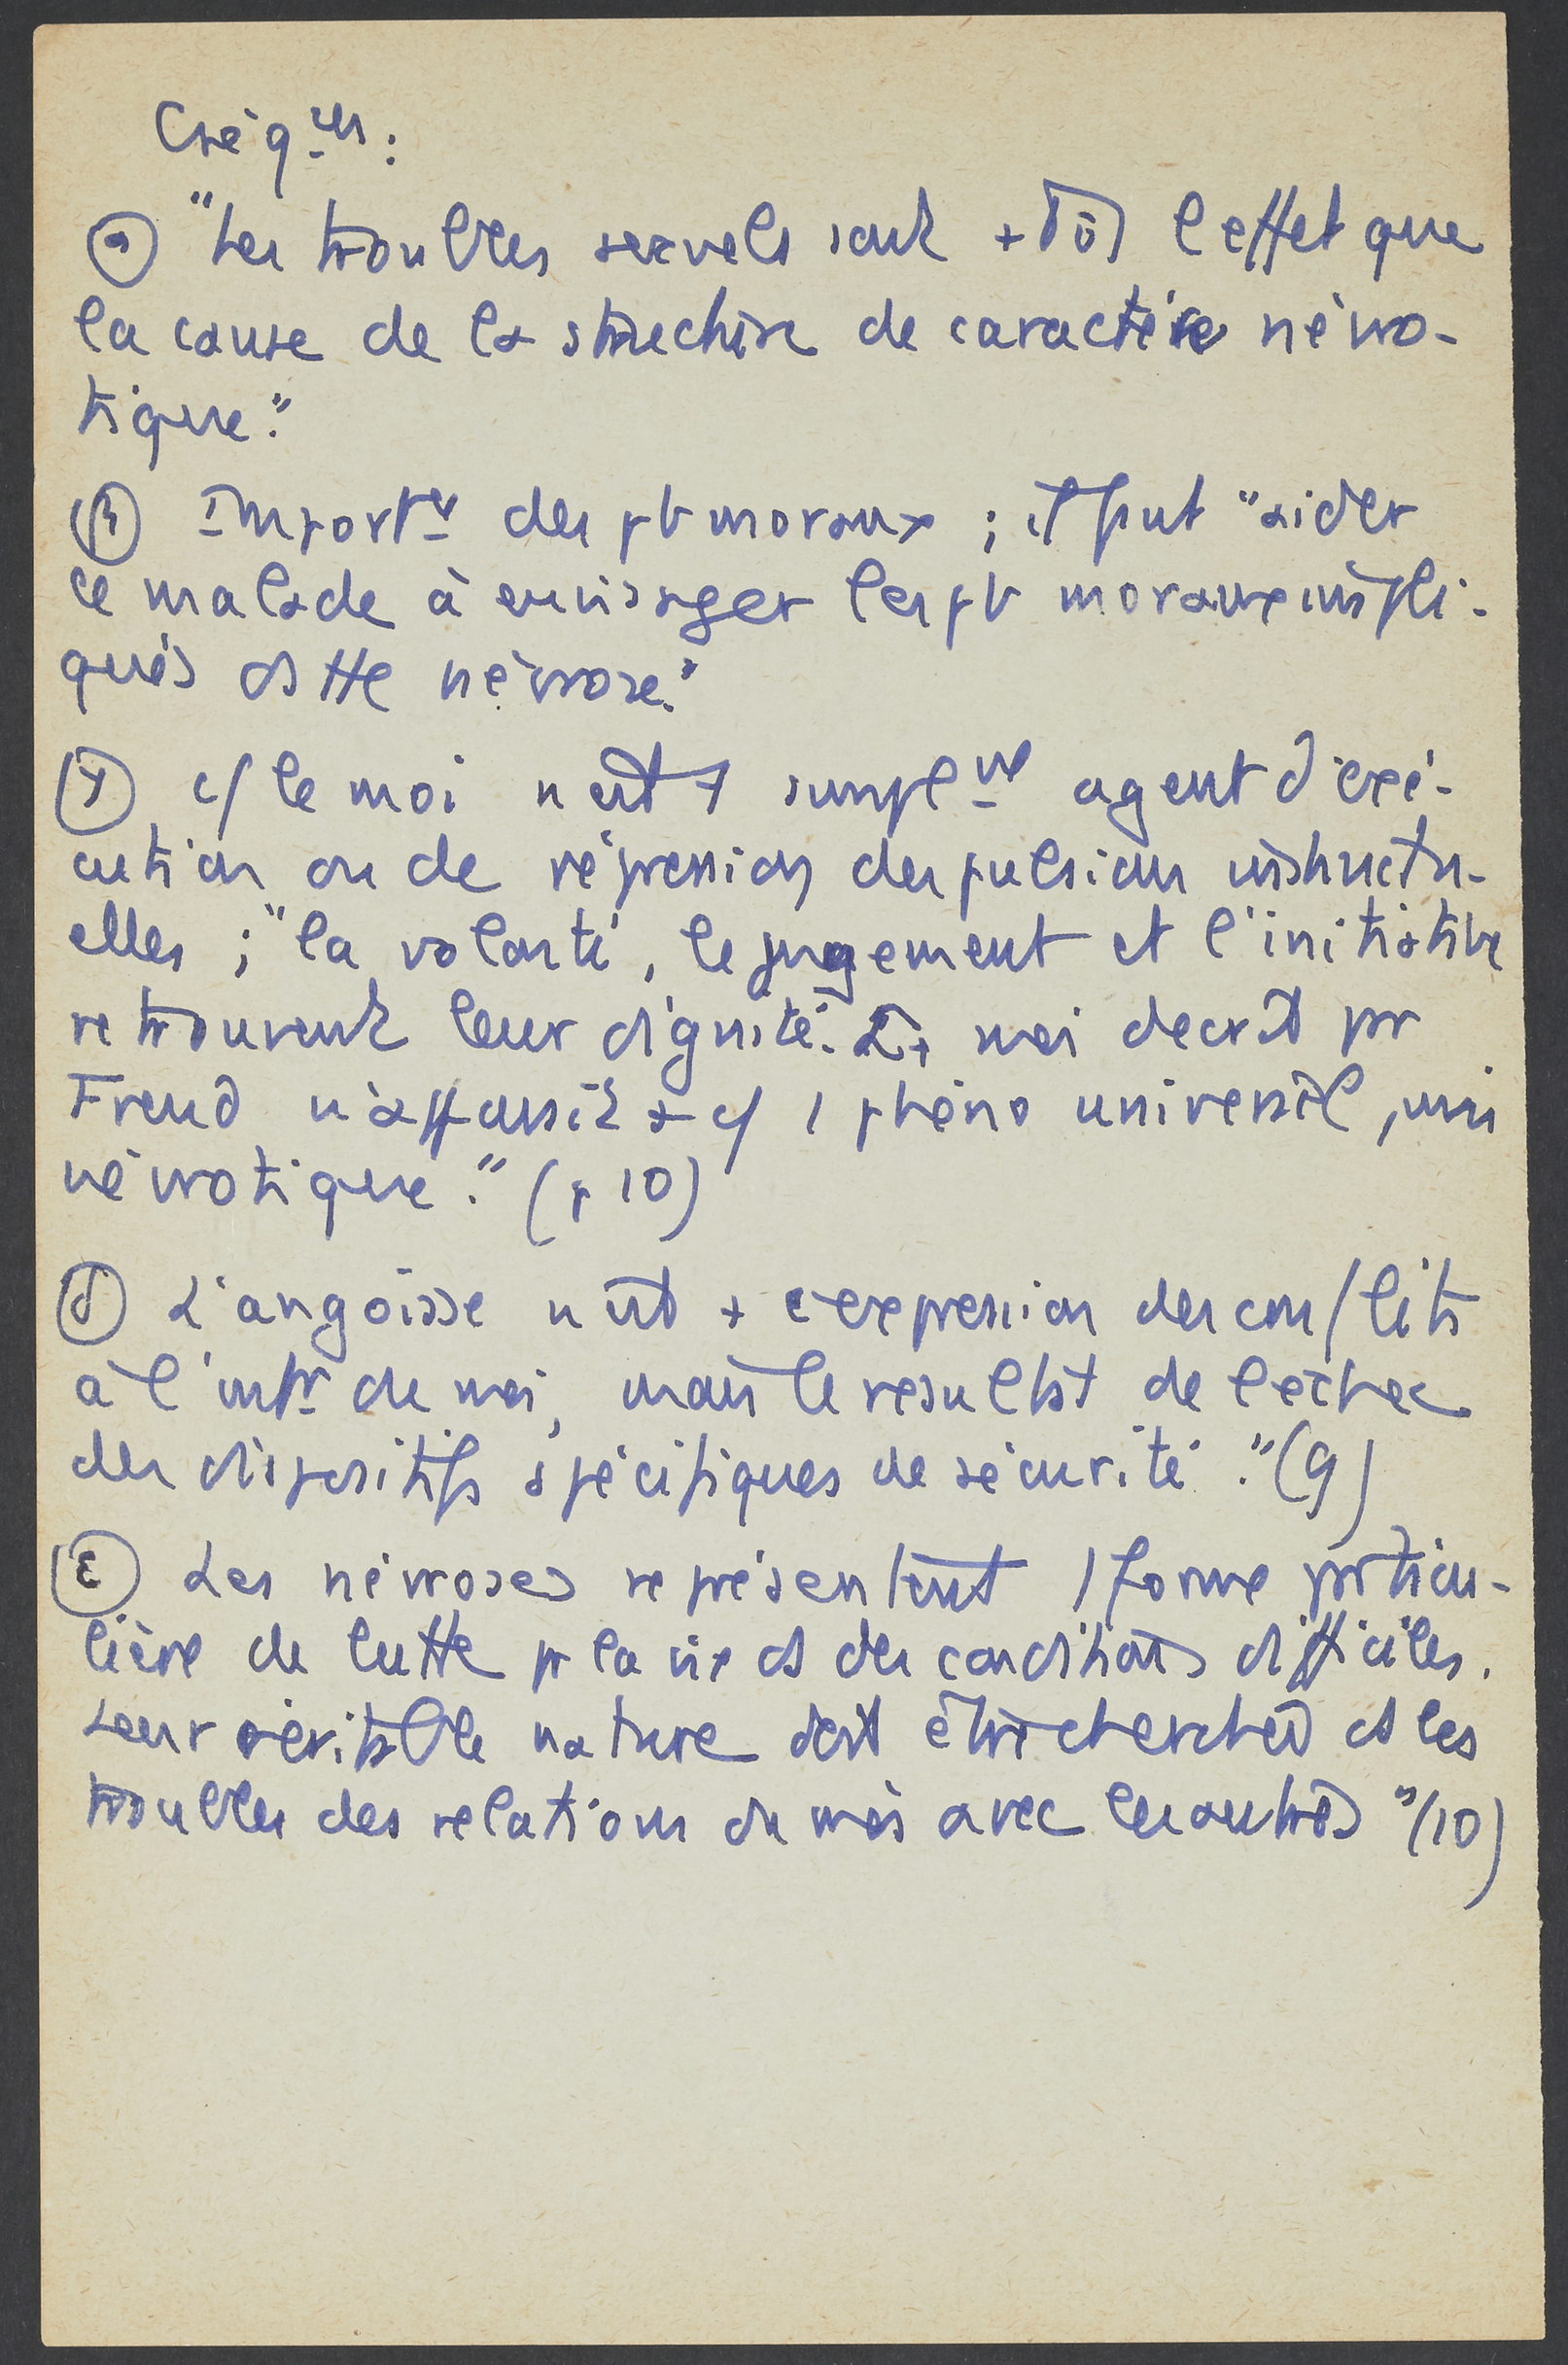 Cséq ces :
α "Les troubles sexuels sont + tôt l'effet que
la cause de la structure de caractère névro-
tique."
β Import ce des pb moraux ; il faut "aider
le malade à envisager les pb moraux impli-
qués ds tte névrose."
γ c/ le moi n'est + simpl mt agent d'exé-
cution ou de répression des pulsions instinctu-
elles ; "la volonté, le jugement et l'initiative
retrouvent leur dignité. Le moi décrit par
Freud n'apparaît + c/ 1 phéno universel, mais
névrotique." (p 10)
δ L'angoisse n'est + l'expression des conflits
à l'intr du moi, mais le résultat de l'échec
des dispositifs spécifiques de sécurité." (9)
ε Les névroses représentent 1 forme particu-
lière de lutte pr la vie ds des conditions difficiles.
Leur véritable nature doit être cherchée ds les
troubles des relations du moi avec les autres" (10)